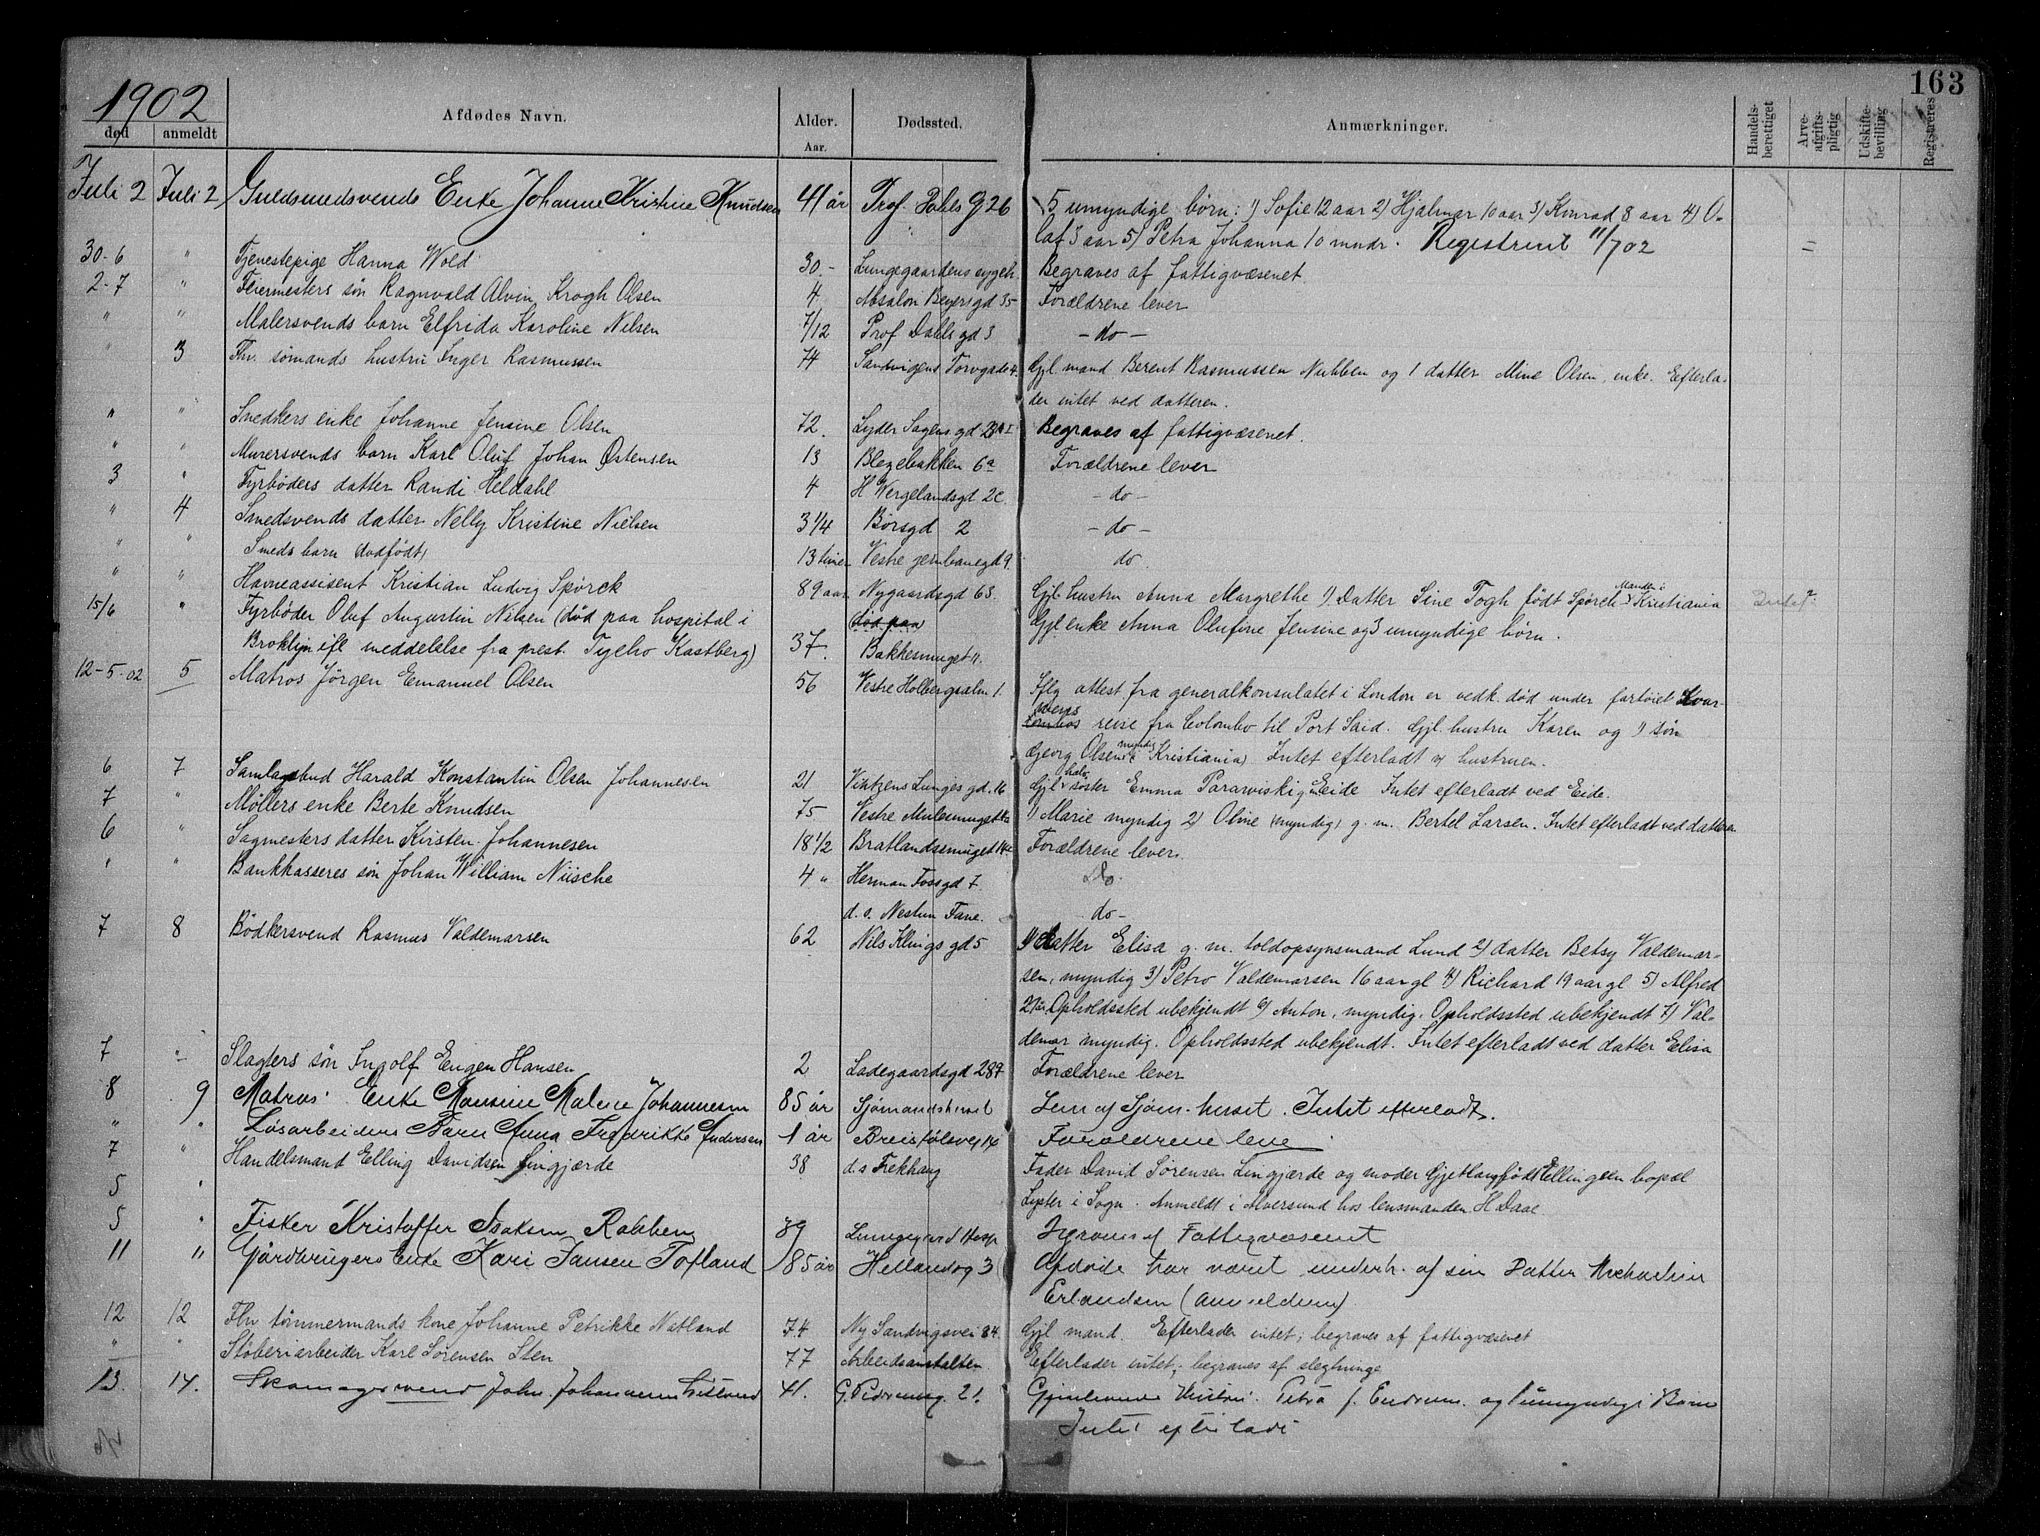 163
1902
død anmeldt Afdødes Navn. Alder. Aar. Dødssted. Anmærkninger. Handels-berettiget Arve-afgifts-pligtig Udskifte-bevilling Registreres
Juli 2 Juli 2 Guldsmedsvends Enke Johanne Kristine Knudsen 41 år Prof. Dahls g 26 5 umyndige børn: 1) Sofie 12 aar 2) Hjalmar 10 aar 3) Konrad 8 aar 4) O-
laf 3 aar 5) Petra Johanna 10 mndr. Registreret 11/702 =
30-6 " Tjenestepige Hanna Wold 30 - Lungegaardens sygeh. Begraves af fattigvæsenet.
2-7 " Feiermesters søn Ragnvald Alvin Krogh Olsen 4 Absalon Beyersgd 35 Forældrene lever
" " Malersvends barn Elfrida Karoline Nilsen 7/12 Prof Dahls gd 3 - do -
" 3 Fhv. sømands hustru Inger Rasmussen 74 Sandvigens Torvgade 4. Gjl. mand Berent Rasmussen Nubben og 1 datter Mine Olsen, enke. Efterla-
der intet ved datteren.
" " Snedkers enke Johanne Jensine Olsen 72. Lyder Sagens gd Begraves af fattigvæsenet.
" " Murersvends barn Karl Oluf Johan Østensen 13 Blegebakken 6a Forældrene lever
3 " Fyrbøders datter Randi Heldahl 4 H Wergelandsgd 2c. - do -
" 4 Smedsvends datter Nelly Kristine Nielsen 3 1/4 Børsgd 2 - do -
" " Smeds barn (dødfødt) 13 timer Vestre jernbanegd 9. do
" " Havneassisent Kristian Ludvig Spørck 89 aar Nygaardsgd 63. Gjl. hustru Anna Margrethe 1) Datter Sine Fogh født Spørck Manden i Kristiania
15/6 " Fyrbøder Oluf Augustin Nilsen (død paa hospital i død paa Gjl enke Anna Olufine Jensine og 3 umyndige børn.
Broklyn ifl. meddelelse fra prest. Tycho Kastberg) 37. Bakkesmuget 11.
12-5-02 5 Matros Jørgen Emanuel Olsen 56 Vestre Holbergsalm. 1. Iflg attest fra generalkonsulatet i London er vedk. død under fartøiet Svar-
reise fra Colombo til Port Said. Gjl. hustru Karen og 1) søn
Georg Olsen myndig (Kristiania) Intet efterladt v hustruen.
6 7 Samlagsbud Harald Konstantin Olsen Johannesen 21 Lunges gd. 16 Gjl halv søster Emma Eide Intet efterladt ved Eide.
7 " Møllers enke Berte Knudsen 75 Vestre Mulesmuget 1) Marie myndig 2) Oline (myndig) g. m. Bertel Larsen. Intet efterladt ved datteren
6 " Sagmesters datter Kirsten Johannesen 18 1/2 Bratlandssmuget Forældrene lever.
" " Bankkasseres søn Johan William Niische 4 " Herman Fossgd 7. Do.
d. s. Nestun Fane. - do -
7 8 Bødkersvend Rasmus Valdemarsen 62 Nils Klings gd 5 1) datter Elisa g. m. toldopsynsmand Lund 2) datter Betsy Valdemar-
sen, myndig 3) Petro Valdemarsen 16 aar gl 4) Richard 19 aar gl 5) Alfred
21 år Opholdssted ubekjendt 6) Anton, myndig. Opholdssted ubekjendt 7) Val-
demar myndig. Opholdssted ubekjendt. Intet efterladt ved datter Elisa
7 " Slagters søn Ingolf Eugen Hansen 2 Ladegaardsgd Forældrene lever
8 9 Matros' Enke Monsine Malene Johannesen 85 år Sjømandshuset Lem af Sjøm.huset. Intet efterladt.
" " Løsarbeiders Barn Anna Fredrikke Andersen 1 år Breistølsvei 14 Forældrene leve
7 " Handelsmand Elling Davidsen Lingjærde 38 d.s Trekhaug Fader David Sørensen Lingjærde og moder født Ellingsen bopæl
5 " Lyster i Sogn. Anmeldt i Alversund hos lensmanden H Daae
5 " Fisker Kristoffer Isaksen Robben 89 Lungegård Hosp Begraves af Fattigvæsenet
11 " Gårdbrugers Enke Kari Jansen Tofland 85 år Hellandsg 3 Afdøde har været underh. af sin Datter
Erlandsen (Anmelderen)
12 12 Fhv tømmermands kone Johanne Petrikke Natland 74 Ny Sandvigsvei 84. Gjl mand. Efterlader intet; begraves af fattigvæsenet
" " Støberiarbeider Karl Sørensen Sten 77 Arbeidsanstalten Efterlader intet; begraves af slegtninge
13. 14. Skomagersvend John Johannesen 41. 21. Gjenlevende Hustru Petra f. og umyndige Børn
Intet efterladt